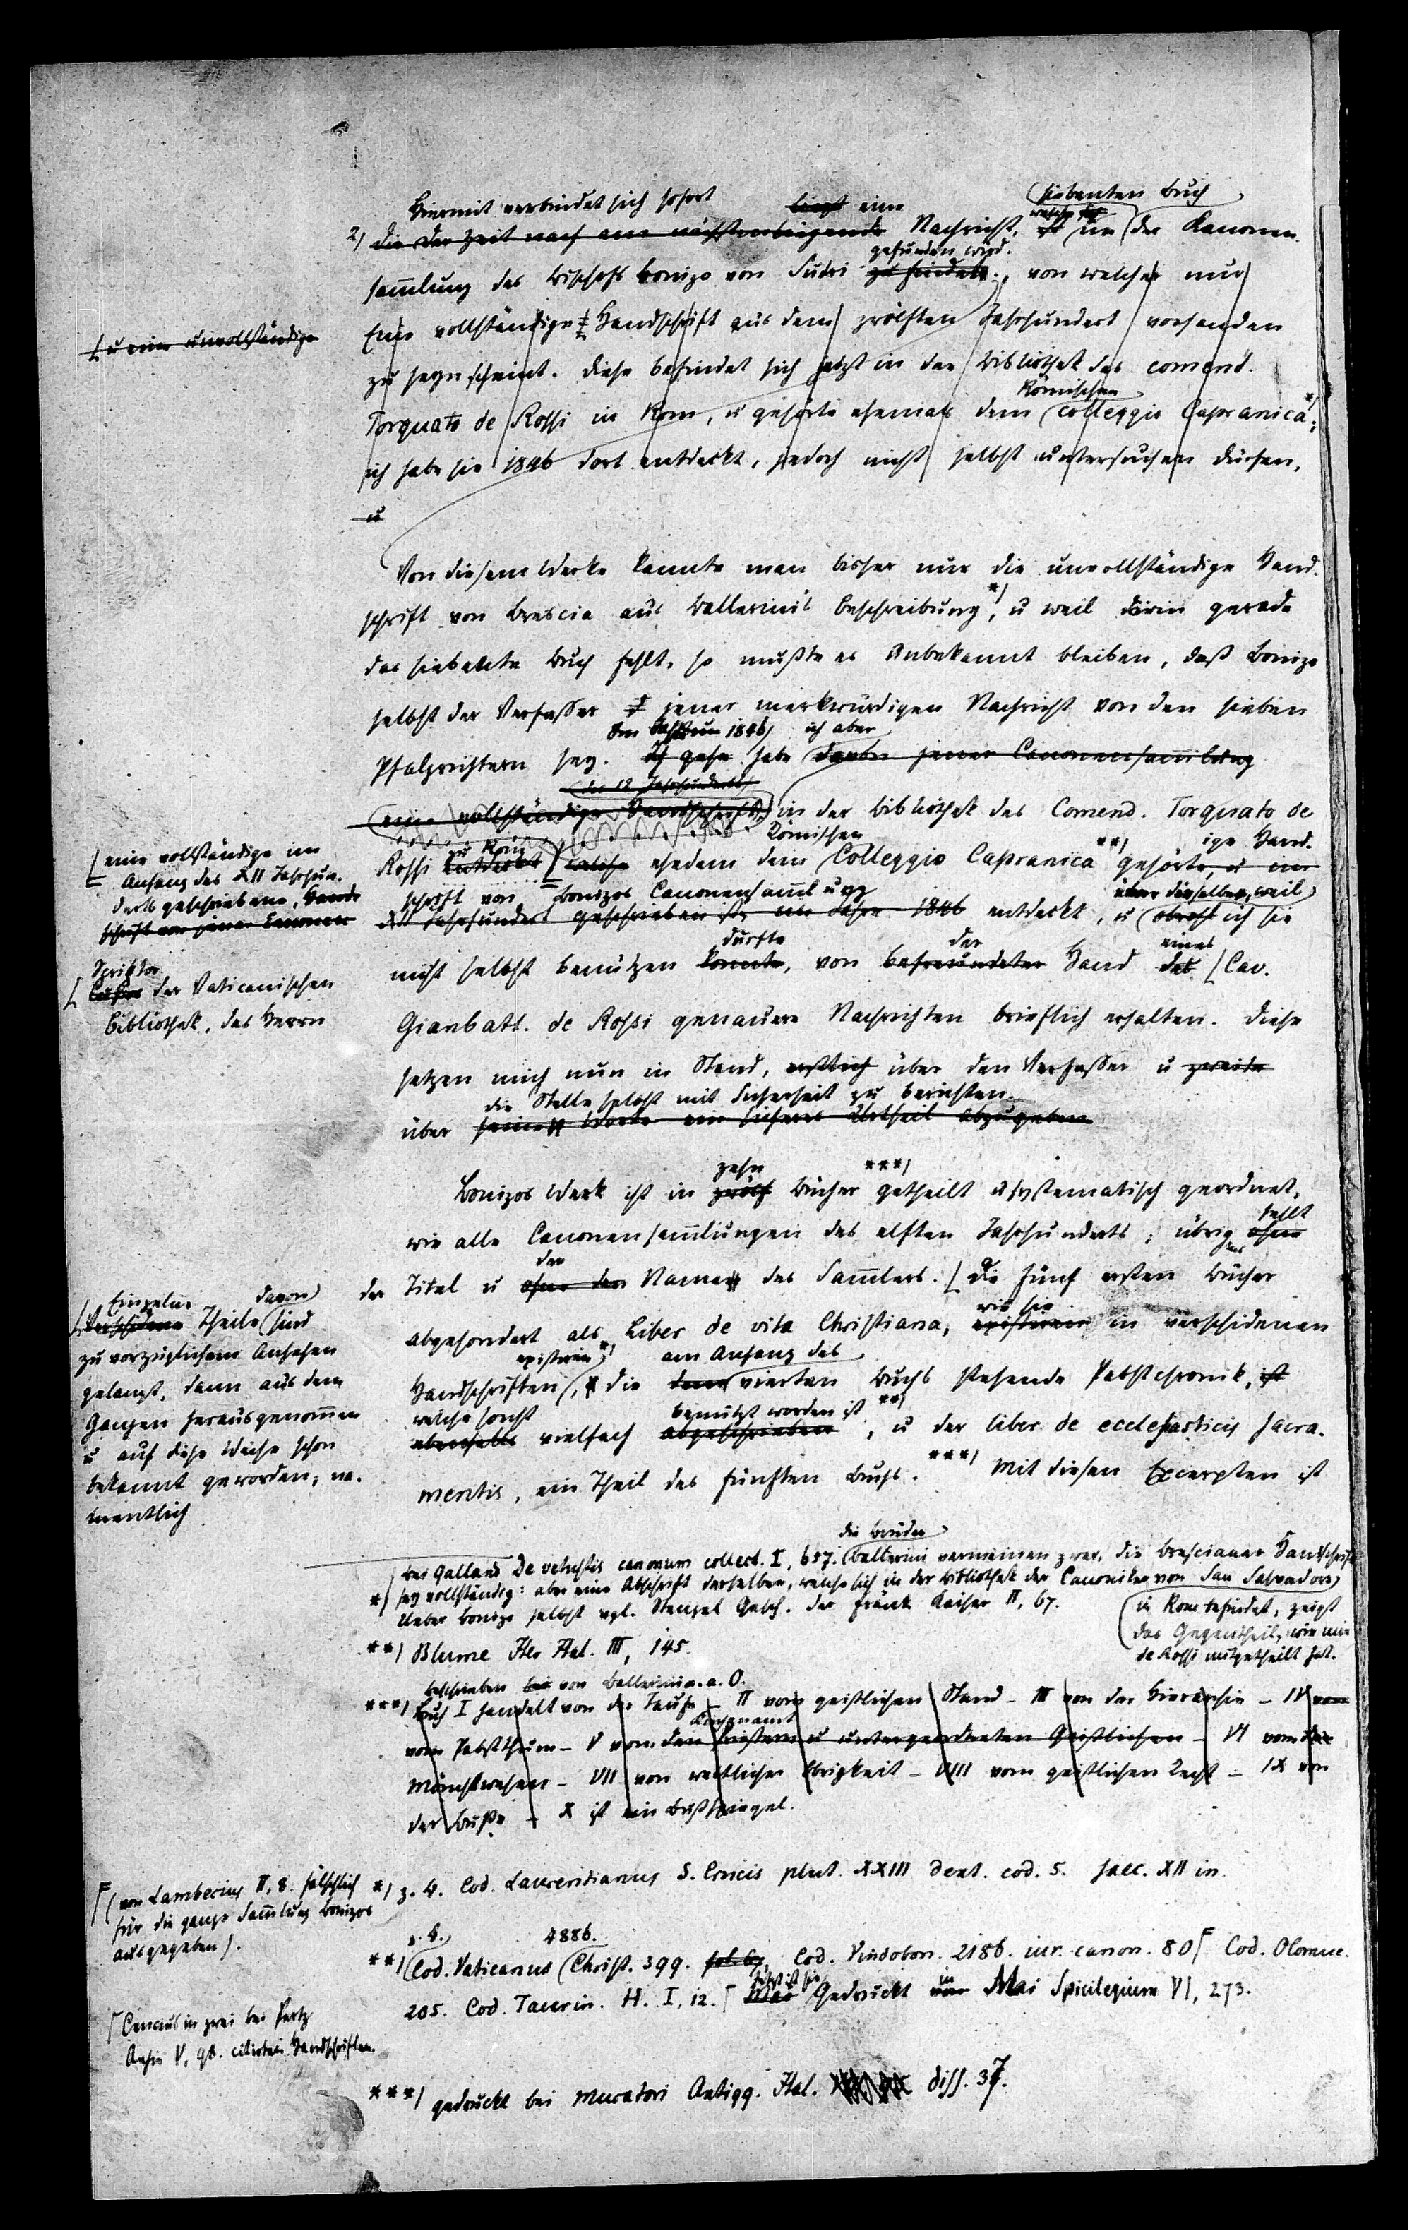 siebenten Buch
Hiermit verbindet sich sofort liegt eine welche
2) die der Zeit nach am nächstenliegende Nachricht, im der Kanonen
gefunden wird.
sammlung des Bischofs Bonizo von Sutri zu finden, von welcher nur
Eine vollständige Handschrift aus dem zwölften Jahrhundert vorhanden
u eine unvollständige
zu seyn scheint. Diese befindet sich jetzt in der Bibliothek des comend.
Römischen
Torquato de Rossi in Rom, u gehörte ehemals dem Colleggio Capranica*);
ich habe sie 1846 dort entdeckt, jedoch nicht selbst untersuchen dürfen,
u
Von diesem Werke kannte man bisher nur die unvollständige Hand
schrift von Brescia aus Ballerinis Beschreibung*), u weil darin gerade
das siebente Buch fehlt, so mußte es unbekannt bleiben, daß Bonizo
selbst der Verfasser jener merkwürdigen Nachricht von den sieben
1846 ich aber
Pfalzrichtern sey. Ich habe jener Canonensammlung
des 12 Jahrhunderts
eine vollständige Handschrift in der Bibliothek des Comend. Torquato de
zu Rom Römischen ige Hand
Rossi entdeckt welche ehedem dem Colleggio Capranica**) gehörte, u im
eine vollständige im
Anfang des XII Jahrhun
derts geschriebene, Hand
schrift von jener Canonen
schrift von Bonizos Canonensammlung über dieselbe, weil
XII Jahrhundert geschrieben ist, im Jahre 1846 entdeckt, u obwohl ich sie
durfte der eines
nicht selbst benutzen konnte, von befreundeter Hand des Cav.
Scriptor
der Vaticanischen
Bibliothek, des Herrn
Gianbatt. de Rossi genauere Nachrichten brieflich erhalten. Diese
setzen mich nun in Stand, erstlich über den Verfasser u zweite
die Stelle selbst mit Sicherheit zu berichten.
über seine Werke ein sicheres Urtheil abzugeben
zehn ***)
Bonizos Werk ist in zwölf Bücher getheilt u systematisch geordnet,
fehlt
wie alle Canonensammlungen des elften Jahrhunderts; übrigens ohne
der
der Titel u ohne den Namen des Sammlers. die fünf ersten Bücher
Einzelne davon
Verschiedene Theile sind
zu vorzüglichem Ansehen
gelangt, dann aus dem
Ganzen herausgenommen
u auf diese Weise schon
bekannt geworden; na
mentlich
wie sie
abgesondert als Liber de vita Christiana, existiren in verschidenen
existiren*) am Anfang des
Handschriften, die dem vierten Buchs stehende Pabstchronik, ist
welche sonst benutzt worden ist**)
ebenfalls vielfach abgeschrieben, u der liber de ecclesiasticis sacra
mentis, ein Theil des fünften Buchs.***) Mit diesen Excerpten ist
die Brüder
bei Galland De vetustis canonum collect. I, 657. Ballerini vermeinen zwar, die Brescianer Handschrift
*) sey vollständig: aber eine Abschrift derselben, welche sich in der Bibliothek der Canoniker von San Salvadore
in Rom befindet, zeigt
das Gegentheil, wie mir
de Rossi mitgetheilt hat.
Ueber Bonizo selbst vgl. Stenzel Gesch. der fränk Kaiser II, 67.
**) Blume Iter Ital. III, 145.
beschrieben von Ballerini a. a. O.
***) Buch I handelt von der Taufe – II vom geistlichen Stand – III von der Hierarchie – IV vom
vom Pabstthum – V von den Priestern u untergeordneten Geistlichen – VI vom
Mönchswesen – VII von weltlicher Obrigkeit – VIII vom geistlichen Recht – IX von
der Buße – X ist ein Bußspiegel.
*) z. B. Cod. Laurentianus S. Crucis plut. XXIII dext. cod. 5. saec. XII in.
(von Lambecius II, 8. fälschlich
für die ganze Sammlung Bonizos
ausgegeben).
z. B. 4886.
**) Cod. Vaticanus Christ. 399. Cod. Vindobon. 2186. iur. canon. 80 Cod. Olomuc.
205. Cod. Taurin. H. I, 12. Gedruckt in Mai Spicilegium VI, 273.
Cencius in zwei bei Pertz
Archiv V, 98. citirten Handschriften.
***) gedruckt bei Muratori Antiqq. Ital. diss. 37.